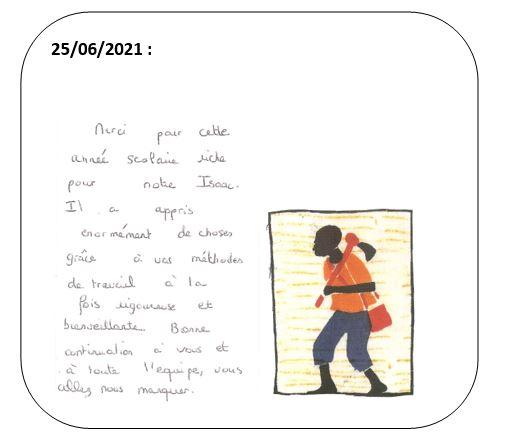 25/06/2021 :
Merci pour cette
année scolaire riche
pour notre Isaac.
Il a appris
enormément de choses
grâce à vos méthodes
de travail à la
fois rigoureuse et
bienveillante. Bonne
continuation à vous et
à toute l'equipe, vous
allez nous manquer.